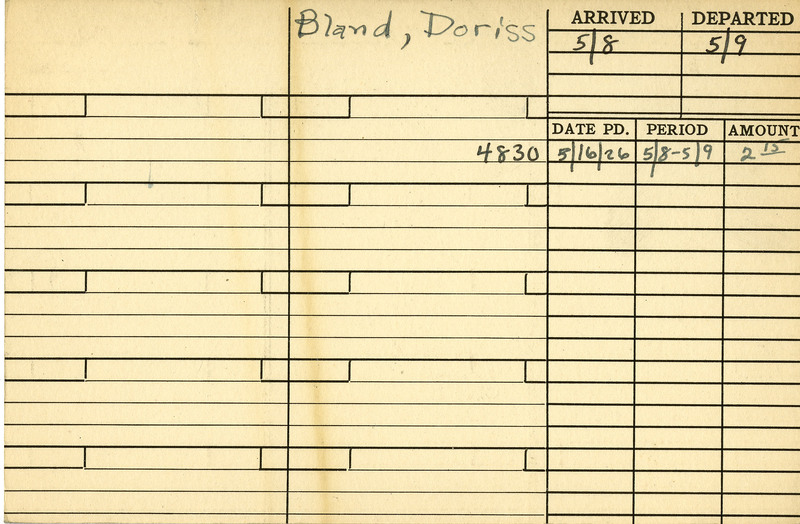 Bland, Doriss
ARRIVED DEPARTED
5/8 5/9
DATE PD. PERIOD AMOUNT
4830 5/16/26 5/8-5/9 2 15